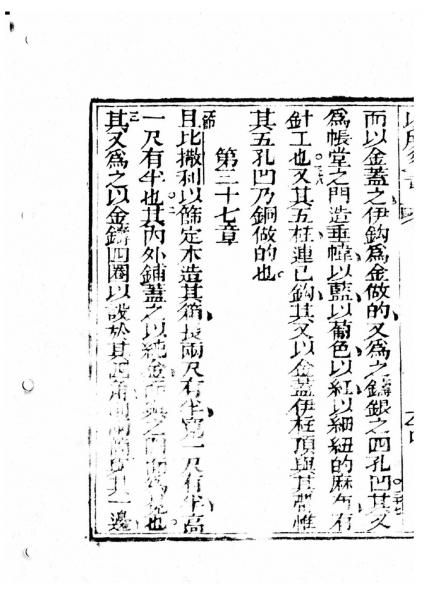 而以金蓋之伊鈎為金做的又為之鑄銀之四孔凹其又
為帳堂之門造垂幃以藍以葡色以紅以細紐的麻布有
針工也又其五柱連已鈎其又以金蓋伊柱頂與其彎帷
其五孔凹乃銅做的也
第三十七章
且比撒利以篩定木造其箱長兩尺有半寬一尺有半高
一尺有半也其內外鋪蓋之以純金 也
其又為之以金鑄四圈以設於其 其一邊